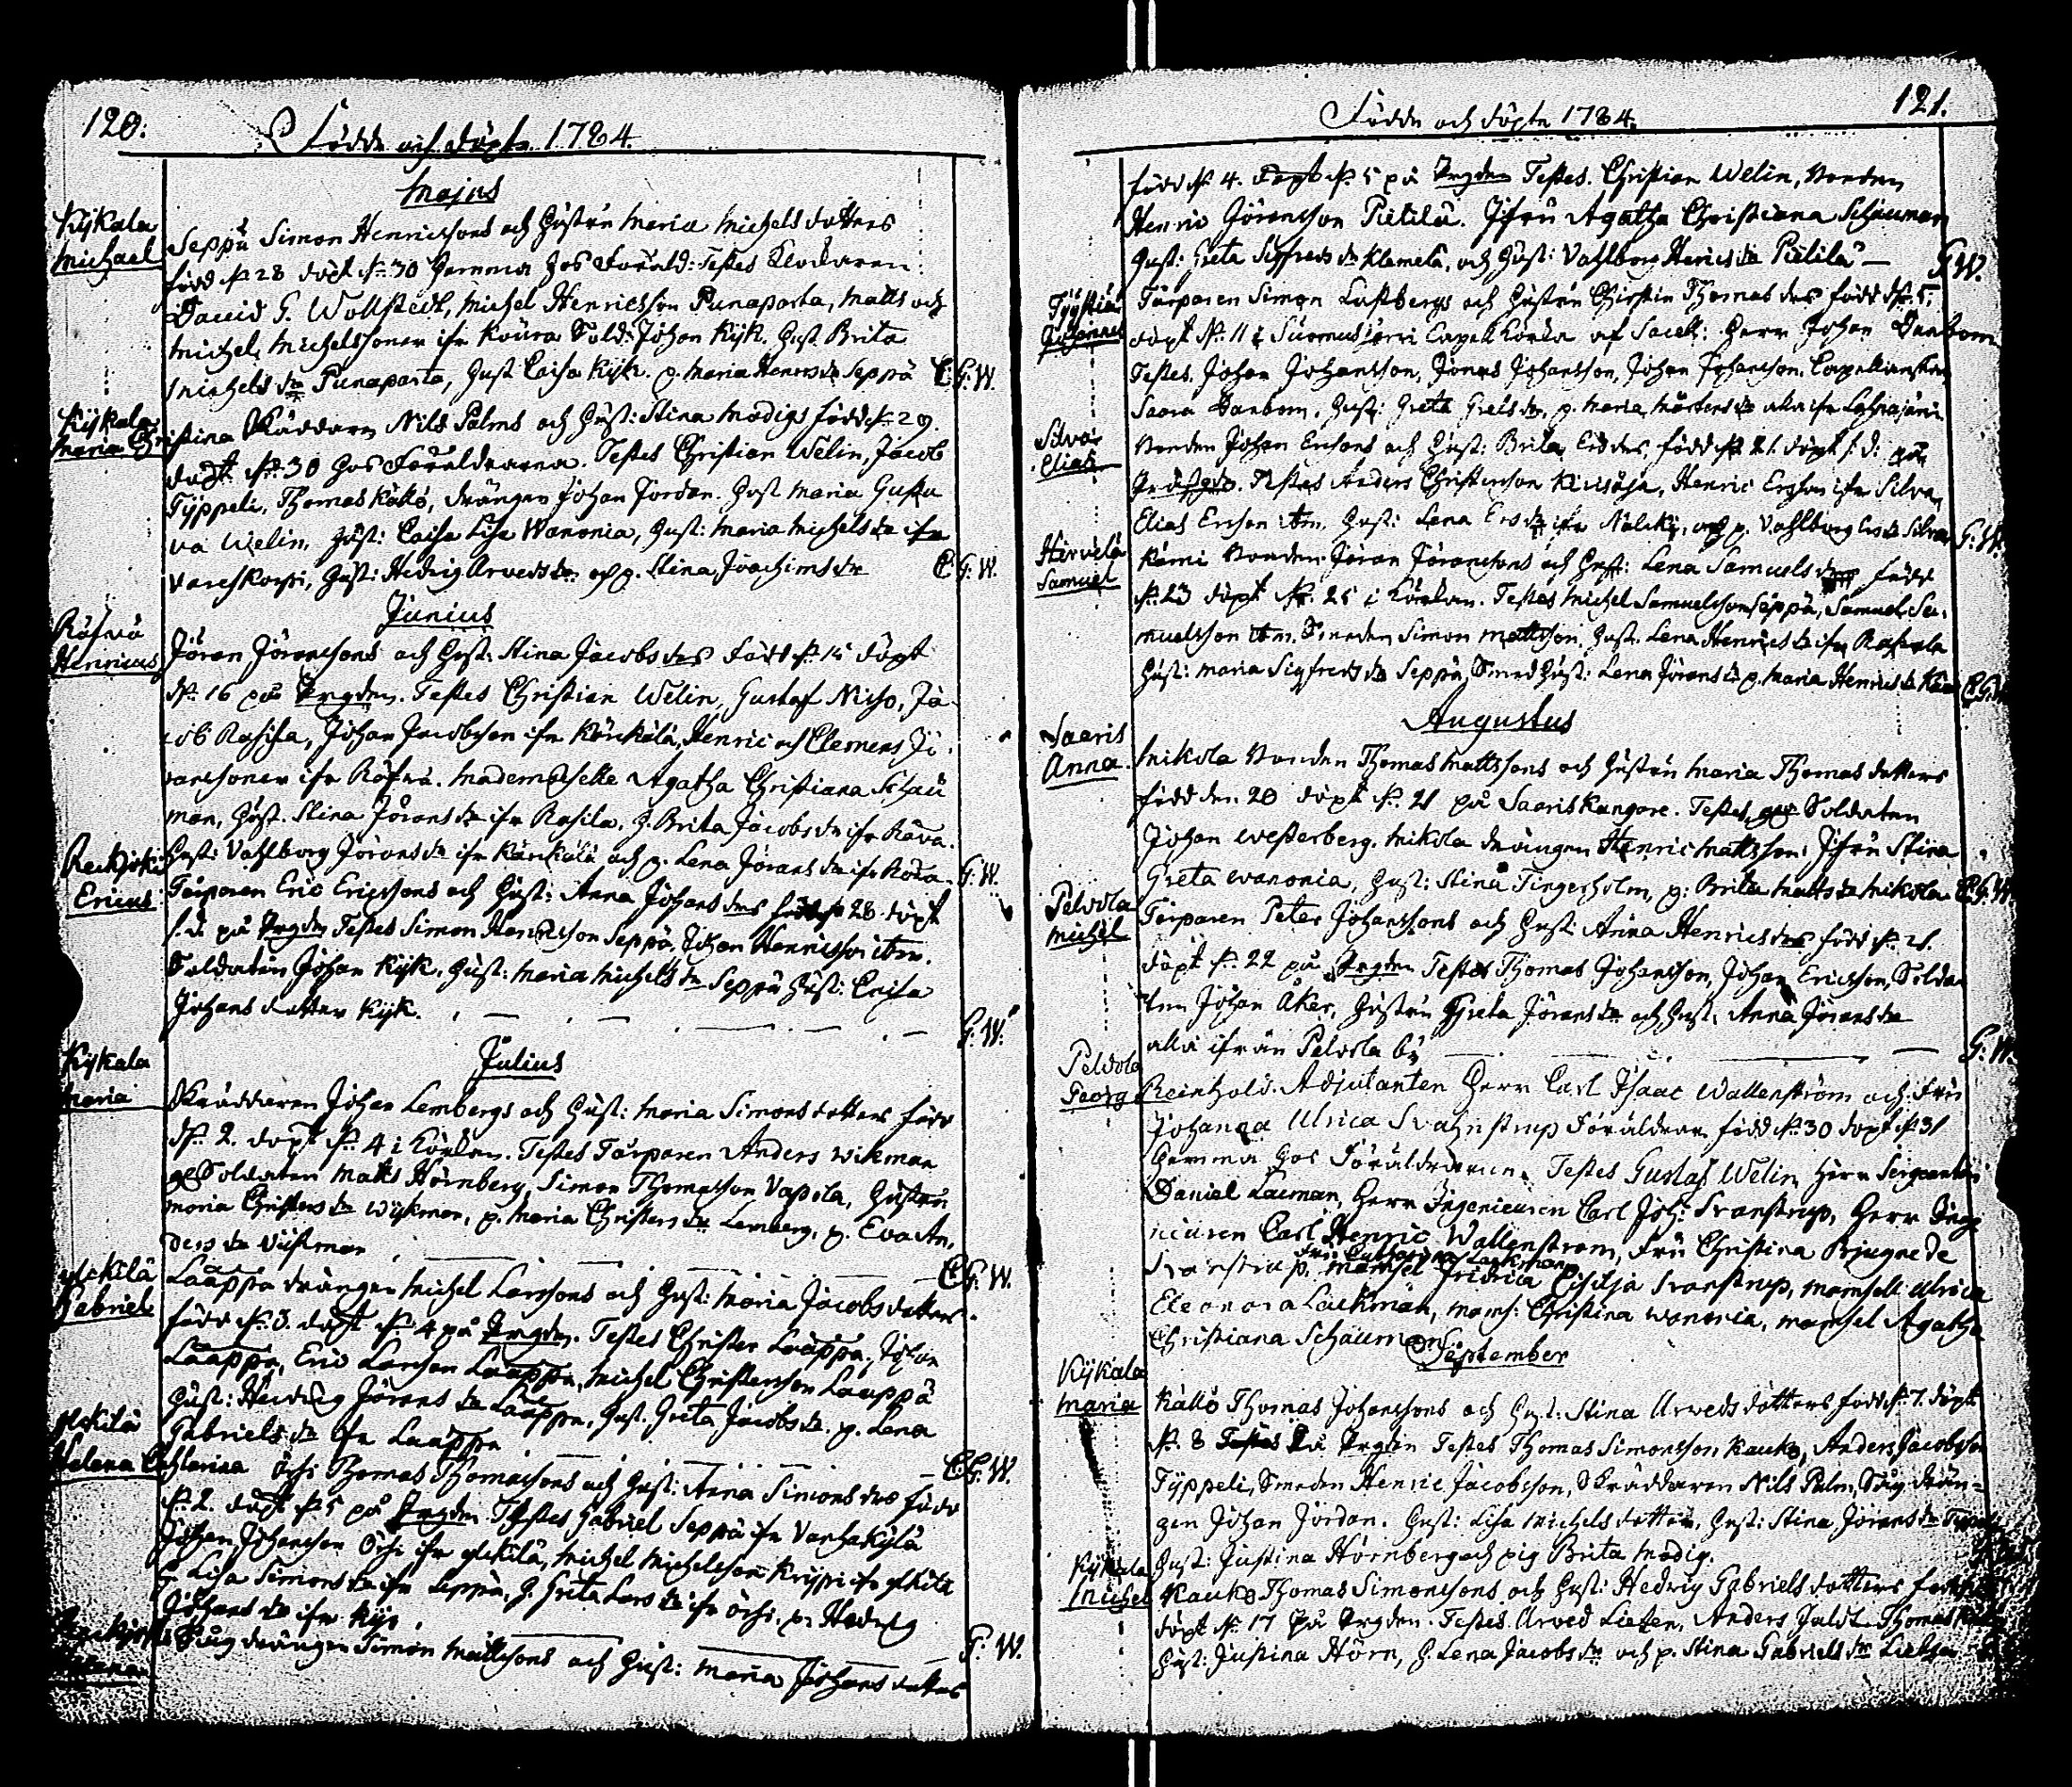 120.
Födde och döpte 1784.
Majus
Kijkala
Michael
Seppä Simon Henricssons och Hustrun Maria Michels dotters
född d. 28 döpt d. 30 hemma hos Föräld: Testes Klockaren
David G. Wollstedt, Michel Henricsson Punaparta, Matts och
Michel Michelssöner ifr Koura Sold: Johan Kijk. Hust. Brita
Michels dr Punaparta, Hust Caisa Kijk. p. Maria Henrics dr Seppä G. W.
Kijkala
Maria Christina Skräddaren Nils Palms och Hust: Stina Modigs född d. 29.
döpt d. 30 hos Föräldrarna. Testes Christian Welin, Jacob
Typpeli, Thomas Kallo, drängen Johan Jordan. Hust Maria Gusta
va Welin, Hust: Caisa Lisa Wanonia, Hust: Maria Michels dr ifr
Vareskorpi, Hust: Hedvig Arveds dr och p. Stina Joachims dr G. W.
Junius
Henricus
Jöran Jöranssons och Hust: Stina Jacobs drs född d. 15 döpt
d. 16 på Prgdn. Testes Christian Welin, Gustaf Nisso, Ja
cob Rasila, Johan Jacobsson ifr Känkälä, Henric och Clemens Jö
ranssöner ifr Röfvä. Mademoiselle Agatha Christiana Schau
man, Hust. Stina Jörans dr ifr Rasila. H. Brita Jacobs dr ifr
Hust: Vahlborg Jörans dr ifr Känkälä och p. Lena Jörans dr ifr G. W.
Ericus
Torparen Eric Ericssons och Hust: Anna Johans drs född d. 28 döpt
s. d. på Prgdn Testes Simon Henricsson Seppä, Johan Henricsson itm.
Soldaten Johan Kijk. Hust: Maria Michels dr Seppä Hust: Caisa
Johans dotter Kijk. G. W.
Julius
Kijkala
Maria
Skräddaren Johan Lembergs och Hust: Maria Simons dotters född
d. 2. döpt d. 4 i Kyrkan. Testes Torparen Anders Wikman
Soldaten Matts Hörnberg, Simon Thomasson Vapola, Hustrun
Maria Christers dr Wijkman, p. Maria Christers dr Lemberg, p. Eva An
ders dr G. W.
Gabriel
Laappa drängen Michel Larssons och Hust: Maria Jacobs dotters
född d. 3. döpt d. 4 på Prgdn. Testes Christer Laappa, Johan
Laappa, Eric Larsson Laappa, Michel Christersson Laappa
Hust: Hedvig Jörans dr Laappa, Hust. Greta Jacobs dr. p. Lena
Gabriels dr ifr Laappa G. W.
Helena Catharina Thomas Thomassons och Hust: Anna Simons drs född
d. 2. döpt d. 5 på Prgdn. Testes Gabriel Seppä ifr Vanhakylä
Johan Johansson ifr Michel Michelsson Krippi ifr
Lisa Simons dr ifr Seppä, H. Greta Lars dr ifr p. Hedvig
Johans dr ifr Kijk G. W.
Sågdrängen Simon Mattssons och Hust: Maria Johans dotters
121.
Födde och döpte 1784.
född d. 4. döpt d. 5 på Prgdn Testes. Christian Welin, Bonden
Henric Göransson Pietilä. Jfru Agatha Christiana Schauman
Hust: Greta Sigfreds dr Klemelä, och Hust: Vahlborg Henrics dr Pietilä G W.
Johannes
Torparen Simon Lustbergs och Hustrun Christin Thomas drs född d. 5.
döpt d. 11 i Suomusjärvi Capell Kyrka af Sacell: Herr Johan Danbom
Testes. Johan Johansson, Jonas Johansson, Johan Johansson. Capellanskan
Saara Danbom. Hust: Greta p. Maria Mårtens dr alla ifr Lahnajärvi
Silva
Elias
Bonden Johan Ericsons och Hust: Brita Eric drs, född d. 21. döpt s. d: på
Prästgdn. Testes Anders Christersson Kirisoja, Henric Ersson ifr Silva,
Elias Ersson itm. Hust: Lena Ers dr ifr och p. Vahlborg Ers dr Silva G. W.
Hirvelä
Samuel
Kärni Bonden Jöran Jöranssons och Hust: Lena Samuels drs född
d. 23 döpt d. 25 i Kyrkan. Testes Michel Samuelsson Seppä, Samuel Sa-
muelsson itm. Smeden Simon Mattsson. Hust. Lena Henrics dr ifr
Hust: Maria Sigfreds dr Seppä, Smed Hust: Lena Jörans dr p. Maria Henrics dr G. W.
Augustus
Saaris
Anna.
Mikola Bonden Thomas Mattssons och Hustrun Maria Thomas dotters
född den 20 döpt d. 21 på Saariskangare. Testes, Soldaten
Johan Westerberg. Mikola drängen Henric Mattsson. Jfru Stina
Greta Wanonia, Hust: Stina Tingerholm, p: Brita Matts dr Mikola G. W.
Pelvola
Michel
Torparen Peter Johanssons och Hust: Anna Henrics drs född d. 21.
döpt d. 22 på Prgdn Testes Thomas Johansson, Johan Ericsson, Solda
ten Johan Åker, Hustrun Greta Jörans dr och Hust. Anna Jörans dr
alla ifrån Pelvola by G. W.
Pelvola
Georg Reinhold. Adjutanten Herr Carl Isaac Wallenström och Fru
Johanna Ulrica Svahnstrup Föräldrar född d. 30 döpt d. 31
hemma hos Föräldrarna. Testes Gustaf Welin, Herr Sergeanten
Daniel Lacman, Herr Ingenieuren Carl Joh: Svanstrup, Herr Inge
nieuren Carl Henric Wallenström, Fru Christina Brjugne de
Fru Catharina Lackman
Svanstrup, Mamsel Fridrica Cisilja Svanstrup, Mamsell Ulrica
Eleonora Lackman, Mams: Christina Wanonia, Mamsel Agatha
Christiana Schauman
September
Kijkala
Maria
Kallo Thomas Johanssons och Hust: Stina Arveds dotters född d. 7. döpt
d. 8 på Prgdn Testes Thomas Simonsson Kauko, Anders Jacobsson
Typpeli, Smeden Henric Jacobsson, Skräddaren Nils Palm, Såg drän-
gen Johan Jordan. Hust: Lisa Michels dotter, Hust: Stina Jörans dr
Hust: Justina Hörnberg och pig Brita Modig.
Kijkala
Michel
Kauko Thomas Simonssons och Hust: Hedvig Gabriels dotters född
döpt d. 17 på Prgdn. Testes Arved Lietzen, Anders Juldt Thomas
Hust: Justina Hörn, H. Lena Jacobs dr och p. Stina Gabriels dr